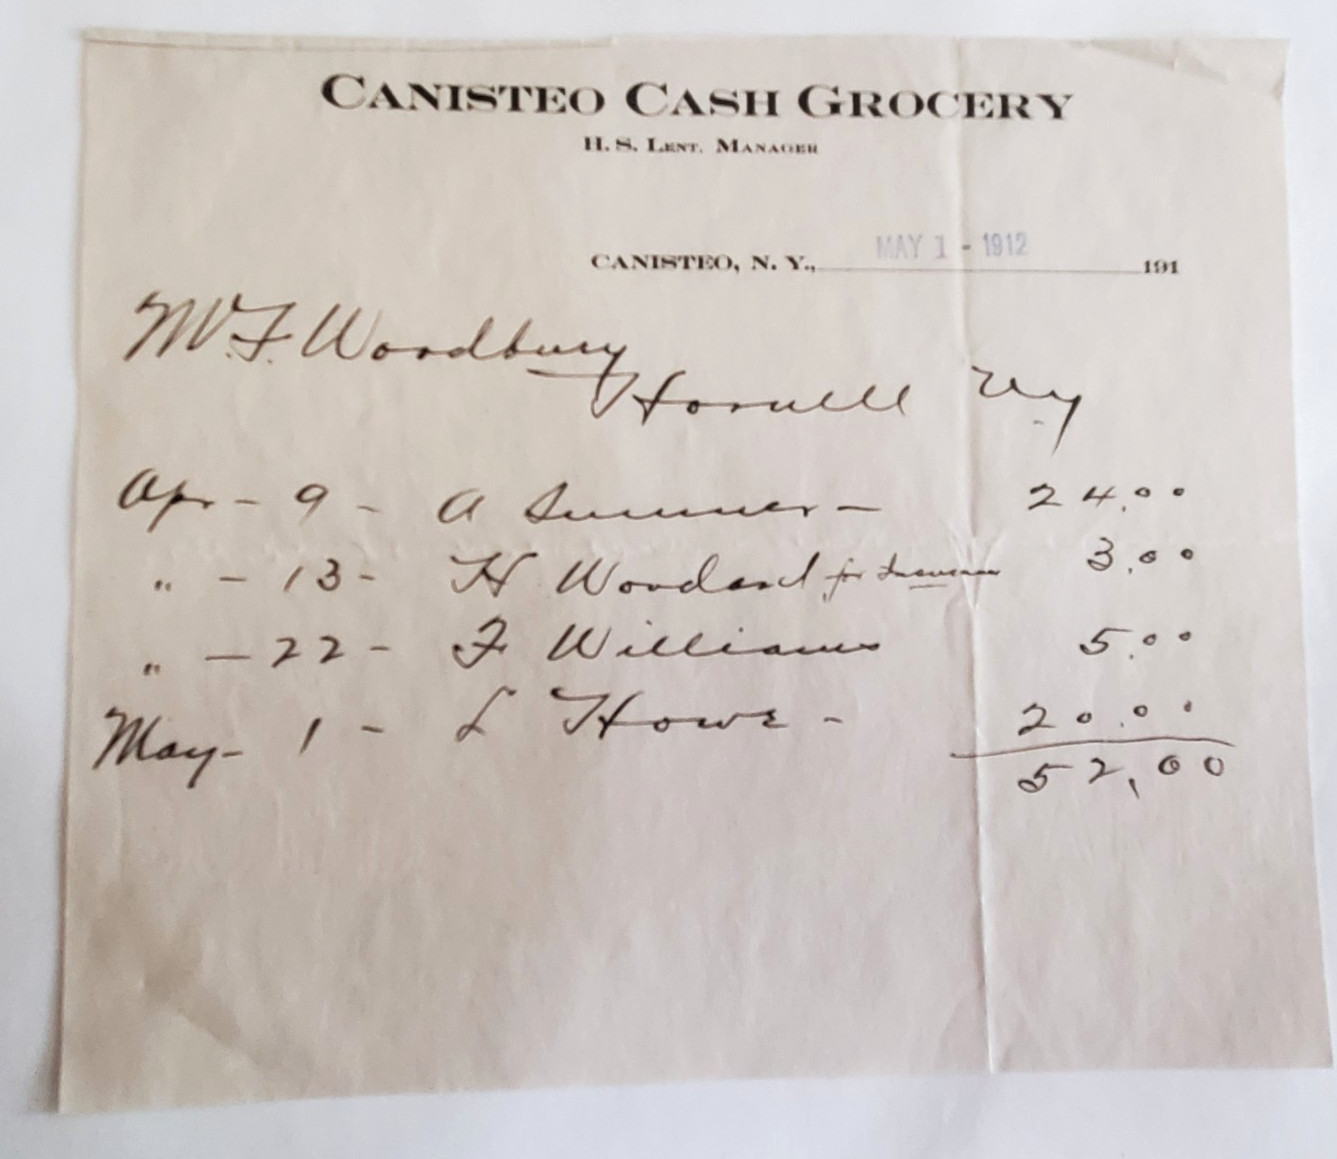 CANISTEO CASH GROCERY
H. S. LENT, MANAGER
CANISTEO, N. Y., MAY 1 - 1912 191
W. F. Woodbury
Hornell Ny
Apr - 9 - A Sumner - 24.00
" - 13 - H Woodard for Insurance 3.00
" - 22 - F Williams 5.00
May - 1 - L Howe - 20.00
52,00